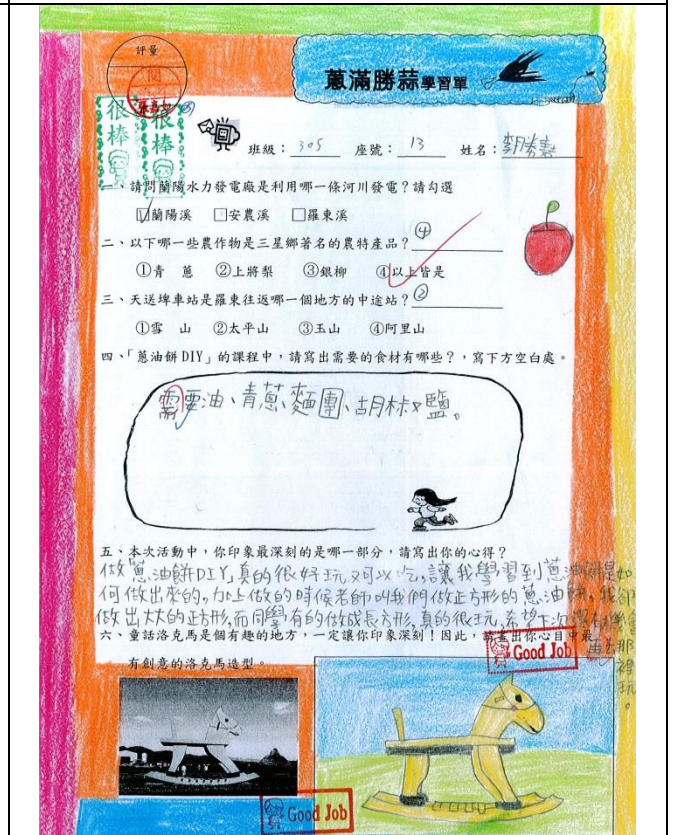 評量
閱
很棒
很棒
蔥滿勝蒜學習單
班級：305 座號：13 姓名：
一、請問蘭陽水力發電廠是利用哪一條河川發電？請勾選
☑蘭陽溪 □安農溪 □羅東溪
二、以下哪一些農作物是三星鄉著名的農特產品？④
①青 蔥 ②上將梨 ③銀柳 ④以上皆是
三、天送埤車站是羅東往返哪一個地方的中途站？②
①雪 山 ②太平山 ③玉山 ④阿里山
四、「蔥油餅DIY」的課程中，請寫出需要的食材有哪些？，寫下方空白處。
需要油、青蔥、麵團、胡椒又鹽。
五、本次活動中，你印象最深刻的是哪一部分，請寫出你的心得？
做「蔥油餅DIY」真的很好玩又可以吃，讓我學習到蔥油餅是如
何做出來的，加上做的時候老師叫我們做正方形的蔥油餅，我卻
做出大大的正方形，而同學有的做成長方形，真的很玩，希望下次還有機會
去那裡玩。
六、童話洛克馬是個有趣的地方，一定讓你印象深刻！因此，請畫出你心目中最
有創意的洛克馬造型。
Good Job
Good Job